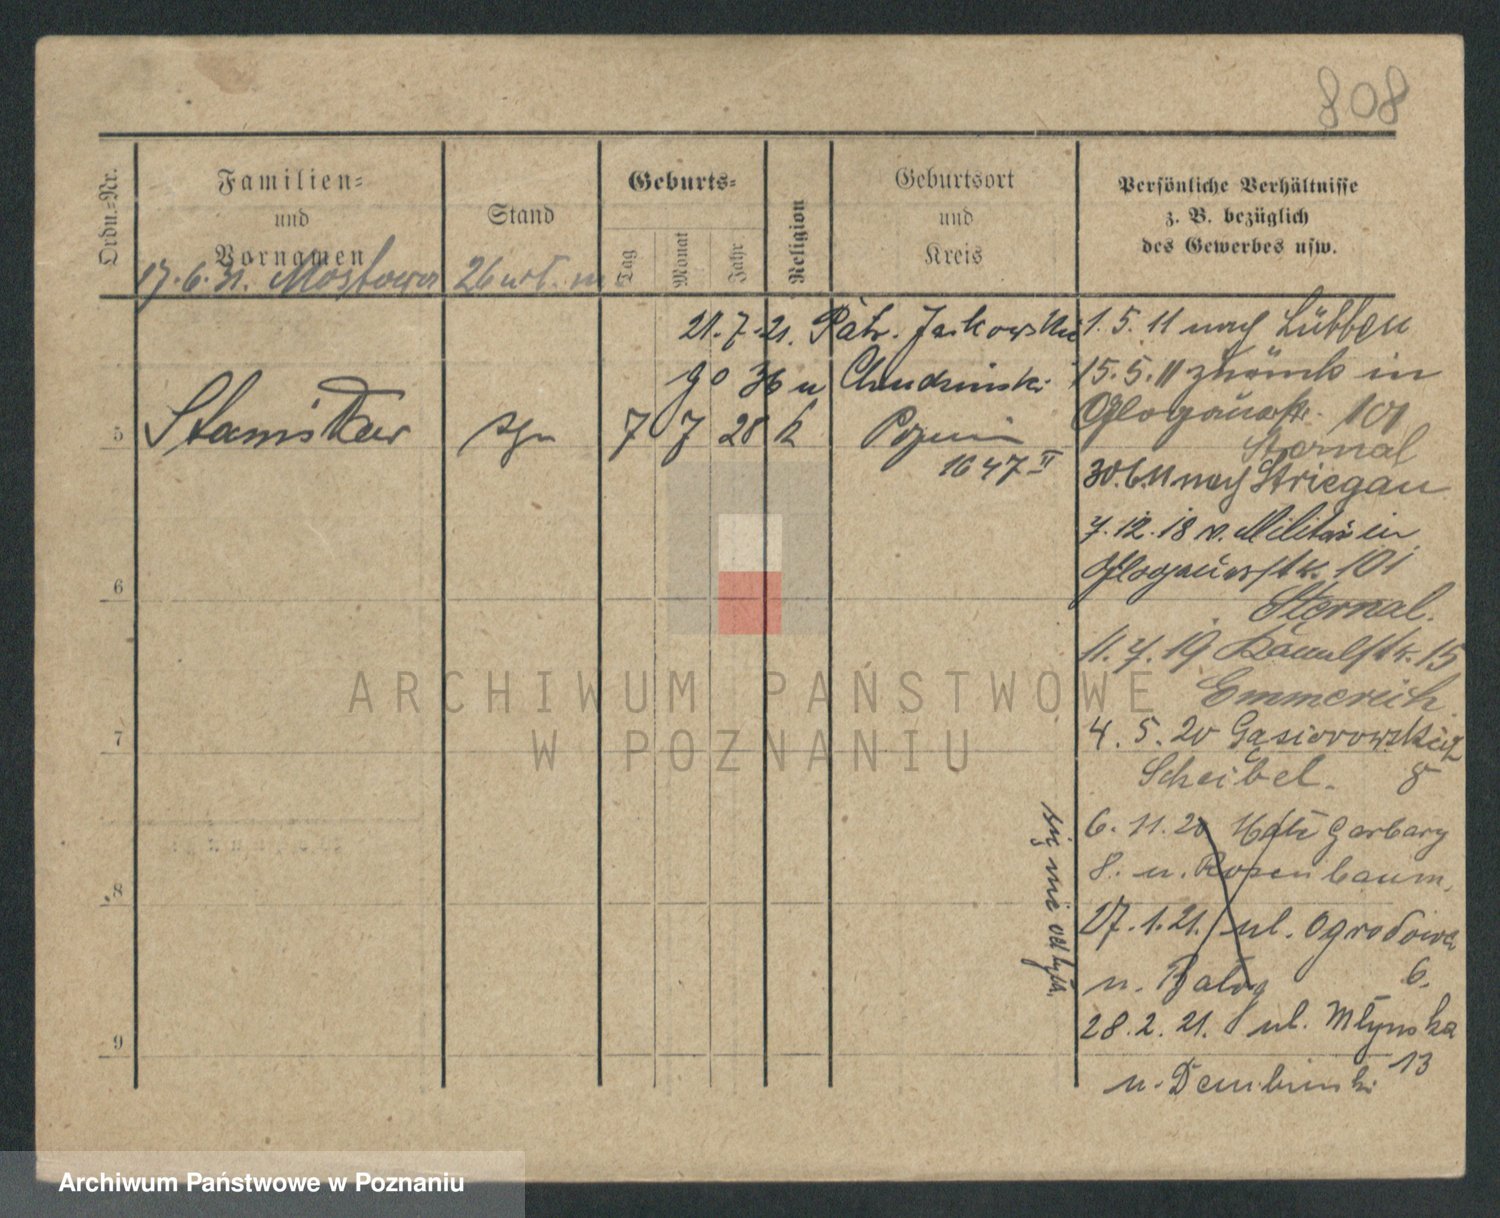 808
Ordn.-Nr.
Familien-
und
Vornamen
Stand
Geburts-
Tag
Monat
Jahr
Religion
Geburtsort
und
Kreis
Persönliche Verhältnisse
z. B. bezüglich
des Gewerbes usw.
17.6.31. Mostowa 26
21.7.21. Patr. Jackowskie
go 36 u Chudzinski
5 Stanisław syn 7 7 28 k
1647 II
1.5.11 nach Lübben
15.5.11 zurück in
Glogauerstr. 101
Sternal
30.6.11 nach Striegau
7.12.18 v. Militär in
Glogauerstr. 101
Sternal.
11.7.19 15
Emmerich
4.5.20 Gąsiorowskich
Scheibel. 8
6.11.20 Garbary
8. u. Rosenbaum.
27.1.21. ul. Ogrodowa
6.
28.2.21. ul. Młyńska
13
u. Dembinski
się nie odbyła.
6
7
8
9
ARCHIWUM PAŃSTWOWE
W POZNANIU
Archiwum Państwowe w Poznaniu